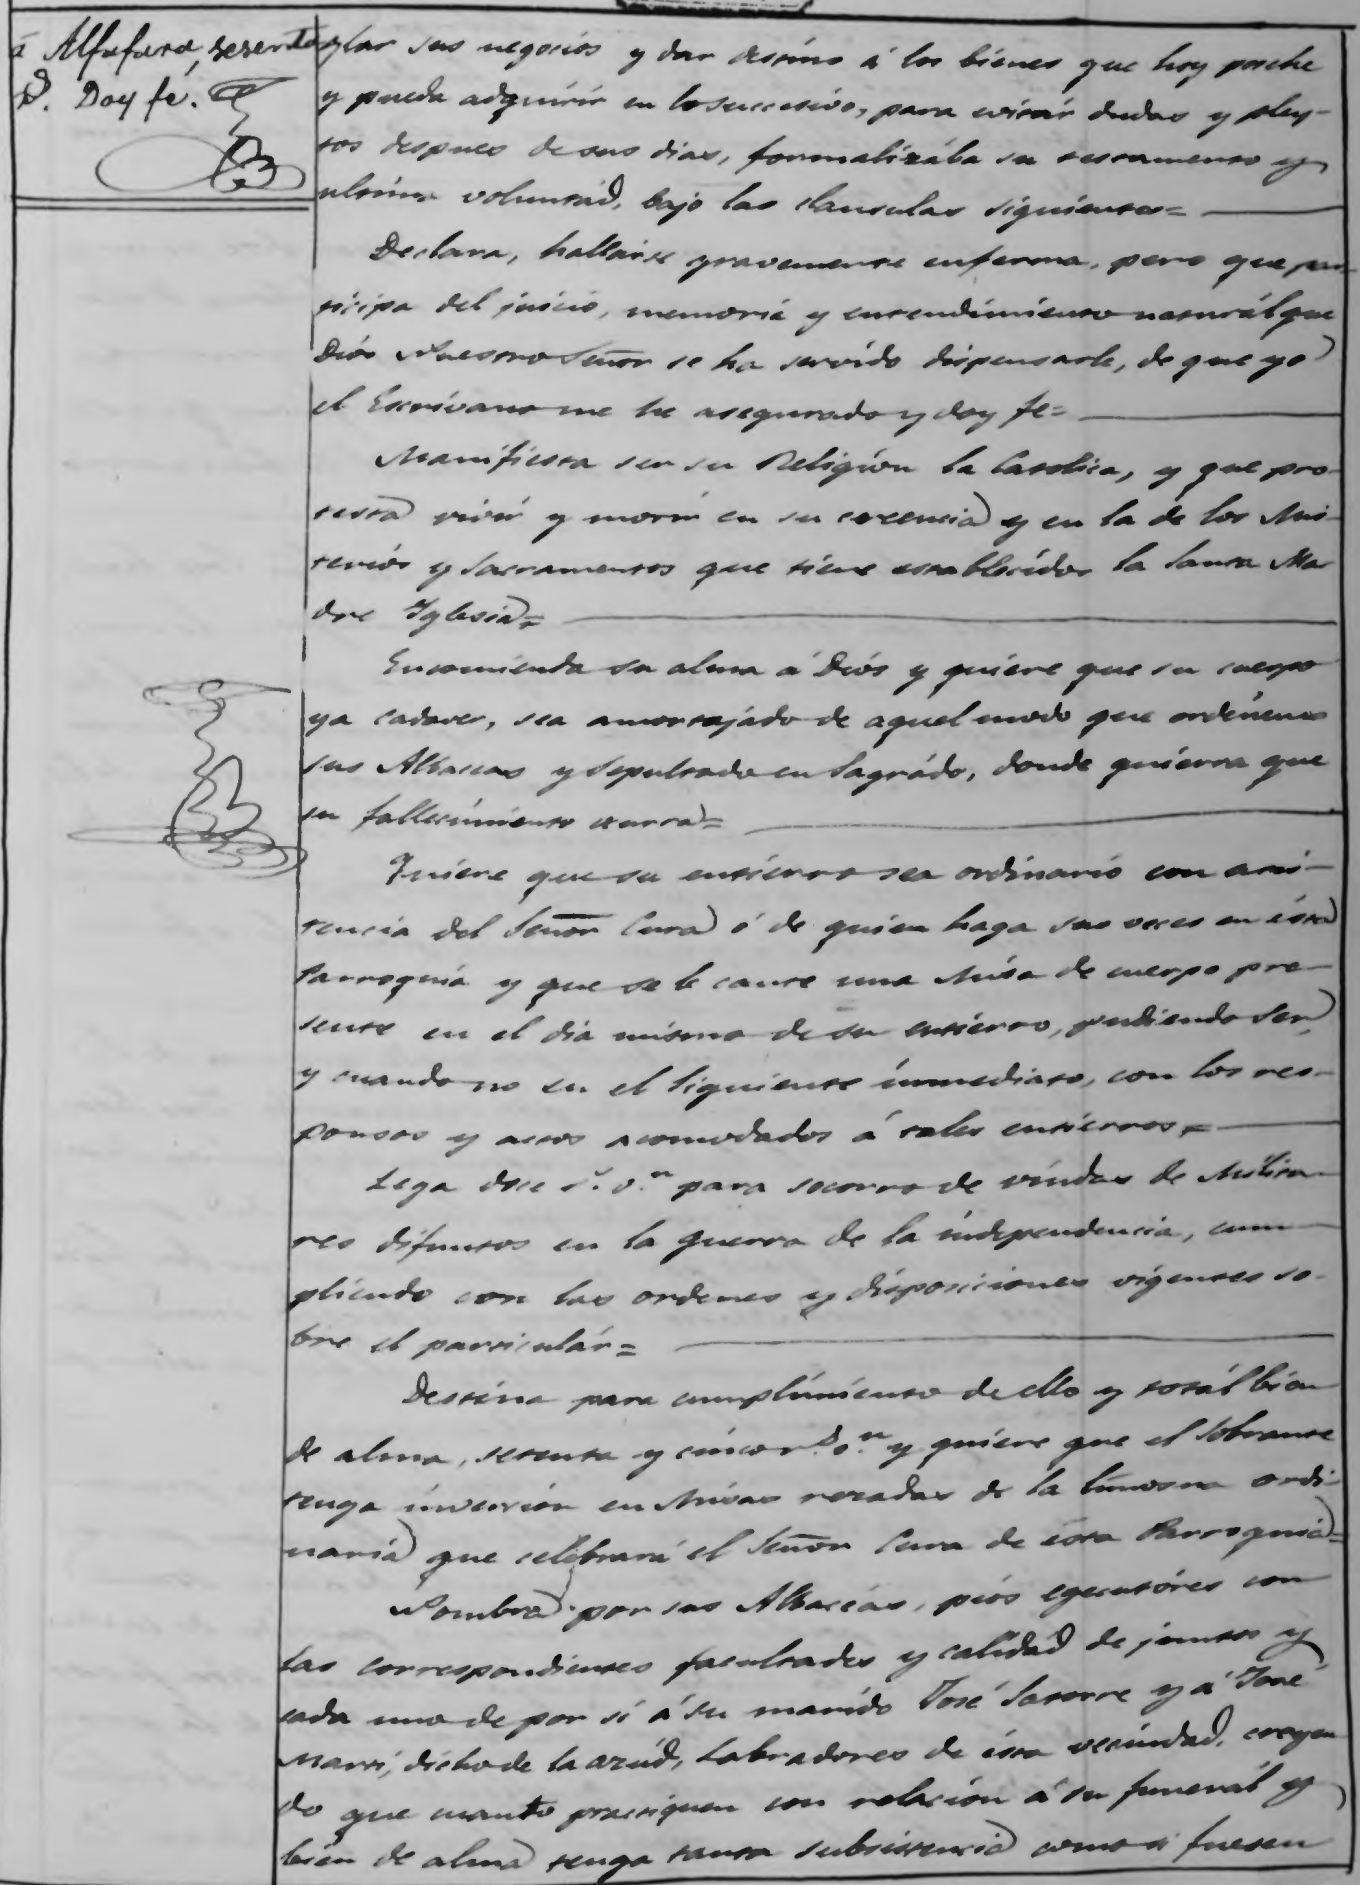 á Alfafara, sesenta
D. Doy fé.
glar sus negocios y dar destino á los bienes que hoy poséhe
y pueda adquirir en lo succesivo, para evitár dudas y pley-
tos despues de sus dias, formalizába su testamento y
ultima voluntad, bajo las clausulas siguientes=
Declara, hallarse gravemente enferma, pero que par-
ticipa del juicio, memoria y entendimiento naturál que
Diós Nuestro Señor se ha servido dispensarle, de que yo
el Escrivano me he asegurado y doy fe=
Manifiesta ser su Religion la Catolica, y que pro-
testa vivir y morir en su creencia y en la de los Mis-
terios y Sacramentos que tiene establecidos la Santa Ma
dre Iglesia=
Encomienda su alma á Diós y quiere que su cuerpo
ya cadaver, sea amortajádo de aquel modo que ordénen
sus Albaceas y sepultado en Sagrádo, donde quierra que
su fallecimiento ocurra=
Quiere que su entierro sea ordinario con asis-
tencia del Señor Cura ó de quien haga sus veces en ésta
Parroquia y que se le cante una Misa de cuerpo pre-
sente en el dia mismo de su entierro, pudiendo ser,
y cuando no en el siguiente immediato, con los res-
ponsos y actos acomodados á tales entierros=
Lega doce r.ˢ v.ⁿ para socorro de viudas de Milita-
res difuntos en la guerra de la independencia, cum-
pliendo con las ordenes y disposiciones vigentes so-
bre el particulár=
Destina para cumplimiento de ello y totál bien
de alma, setenta y cinco r.ˢ v.ⁿ y quiere que el sobrante
tenga inversión en Misas rezadas de la limosna ordi-
naria que celebrará el Señor Cura de esta Parroquia=
Nombra por sus Albaceas, piós egecutóres con
las correspondientes facultades y calidad de juntos y
cada uno de por sí á su marido José Satorre y á José
Martí, dicho de la azúd, Labradores de ésta vecindad, creyen
do que cuanto practiquen con relación á su funerál y
bien de alma tenga tanta subsistencia como si fuesen